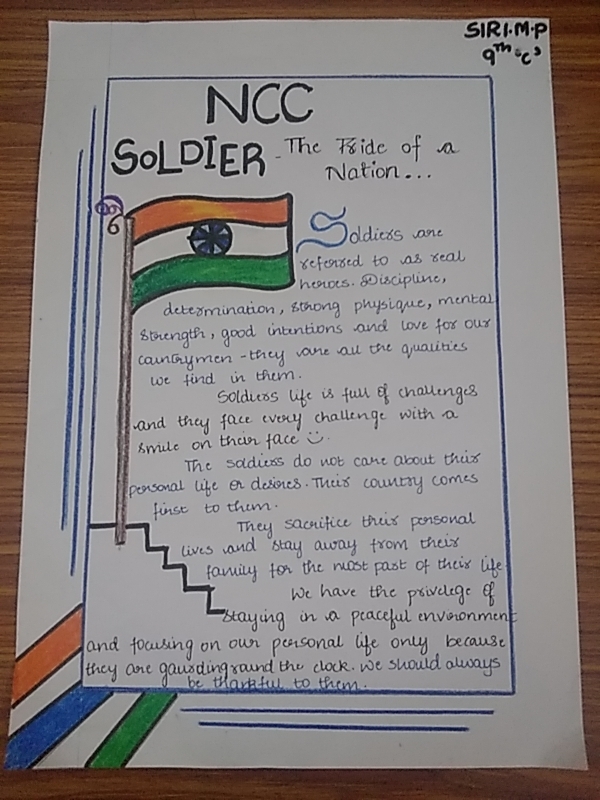 SIRI.M.P
9th "C"
NCC
SOLDIER - The Pride of a
Nation...
Soldiers are
referred to as real
heroes. Discipline,
determination, strong physique, mental
strength, good intentions and love for our
countrymen - they are all the qualities
we find in them.
Soldiers life is full of challenges
and they face every challenge with a
smile on their face ☺.
The soldiers do not care about their
personal life or desires. Their country comes
first to them.
They sacrifice their personal
lives and stay away from their
family for the most past of their life
We have the privelege of
staying in a peaceful environment
and focusing on our personal life only because
they are gaurding round the clock. We should always
be thankful to them.